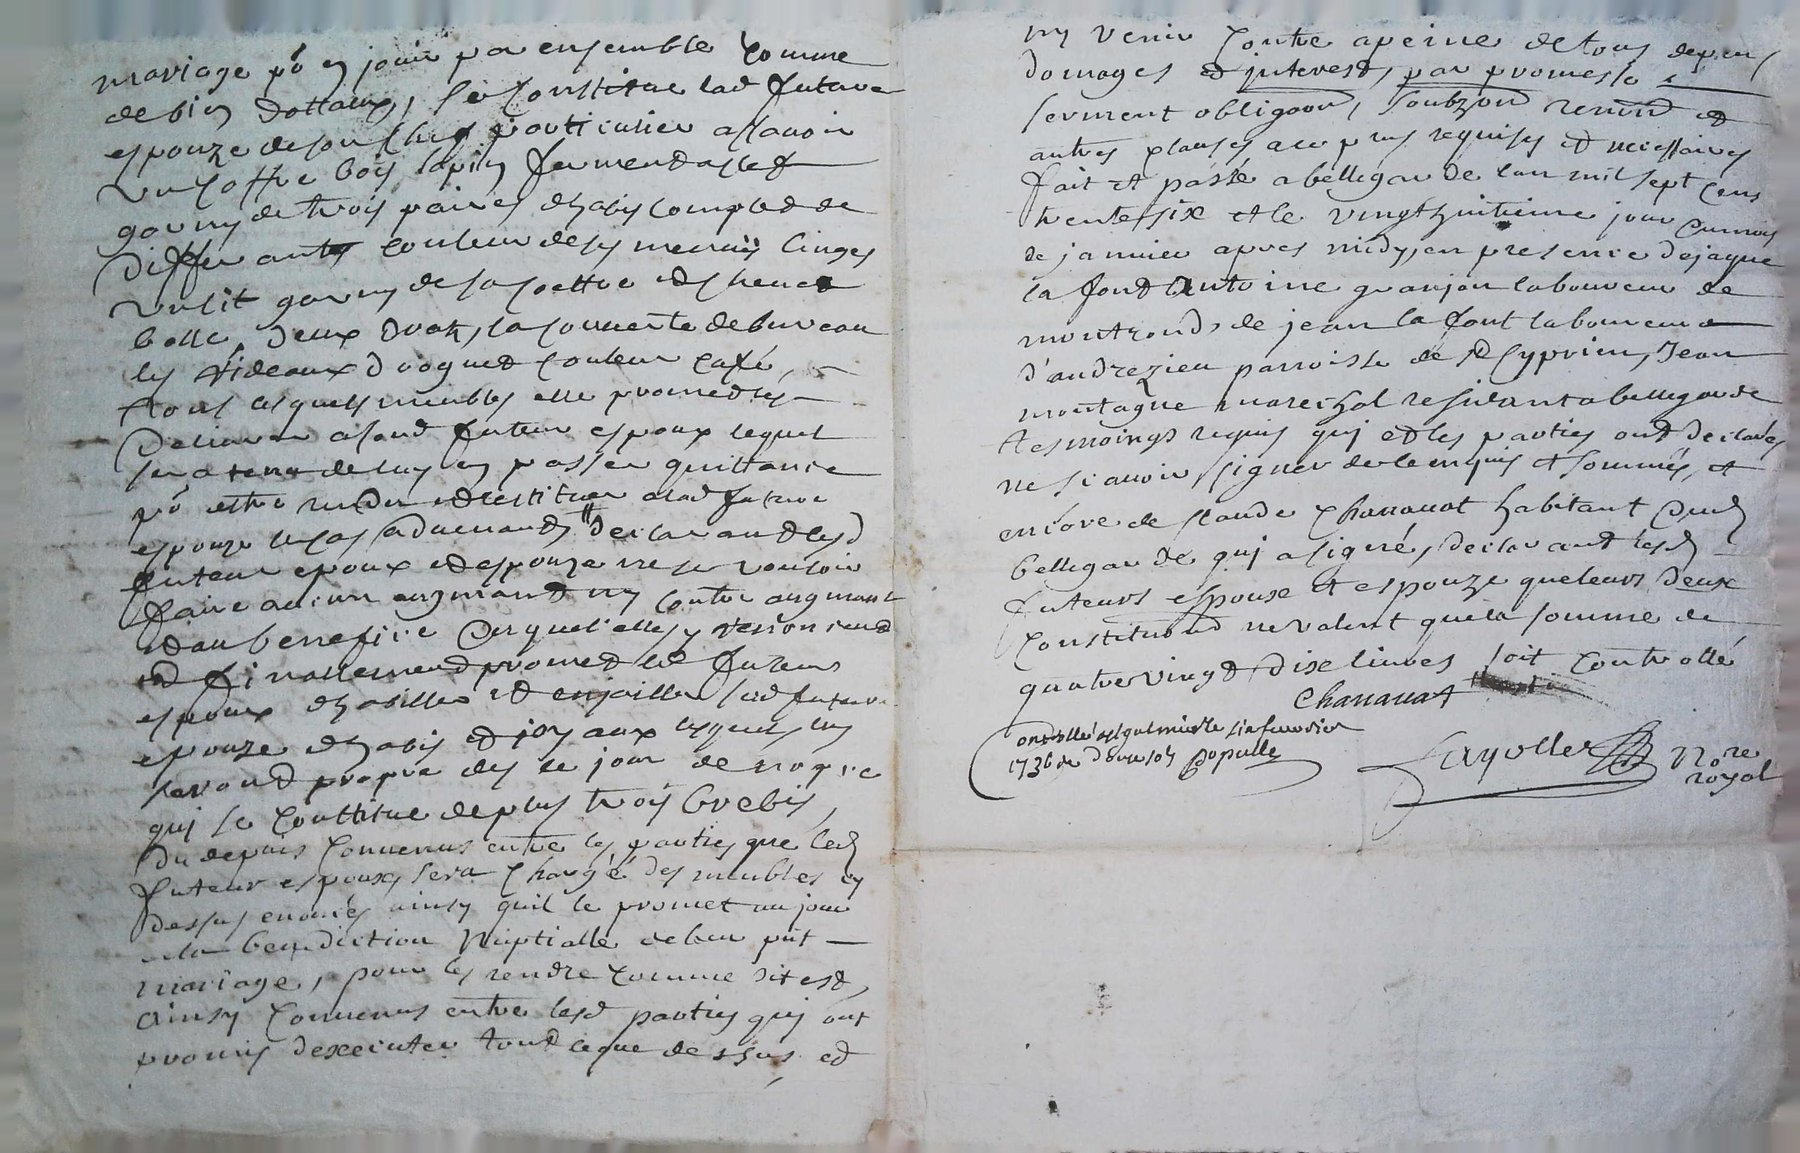 mariage po en jouir par ensemble comme
de bien dottaux, se constitue lad future
espouze de son chef particulier assavoir
un coffre bois sapin fermend a clef
garny de trois paires dhabis complet de
differants couleur de ses menus linges
un lit garny de sa coettre et chevet
balle, deux drap, la couverte de bureau
les rideaux droguet couleur caffé,
tous lesquels meubles elle promet les
delivrer a sond futeur espoux lequel
sera tenu de luy en passer quittance
po estre rendu et restituer a lad future
espouze le cas advenand declarand lesd
futeur epoux et espouze ne se vouloir
faire aucun augmand ny contre augmant
et au beneffice desquels elles y renoncend
et finallemend promet led futeur
espoux dhabiller et enjailler lad future
epouze dhabis et joyaux lesquels luy
serond propre des le jour de nopce
qui se constitue de plus trois brebis,
du depuis convenus entre les parties que led
futeur espoux sera chargé des meubles cy
dessus enoncés ainsy quil le promet au jour
de la benediction nuptialle de leur pnt
mariage, pour les rendre comme dit est,
ainsy convenus entre lesd parties qui ont
promis dexecuter tout ce que dessus et
ny venir contre a peine de tous depens
domages et interest, par promesse
serment obligaon, soubzon renond et
autres clauses a ce plus requises et necessaires
fait et passé a bellegarde lan mil sept cens
trente six et le vingt huitieme jour
de janvier apres midy, en presence de jaque
la fond Antoine granjon laboureur de
montrond, de jean la font laboureur
d'andrezieu parroisse de st Cyprien, Jean
montagne marechal residant a bellegarde
tesmoings requis qui et les parties ont declarés
ne scavoir signer de ce enquis et sommés, et
encore de claude Chavanat habitant dud
bellegarde qui a signé, declarant lesd
futeurs espoux et espouze que leurs deux
constituond ne valent que la somme de
quatre vingt dixe livres soit controllé
Chavanat
1736
Fayolle Nore
royal